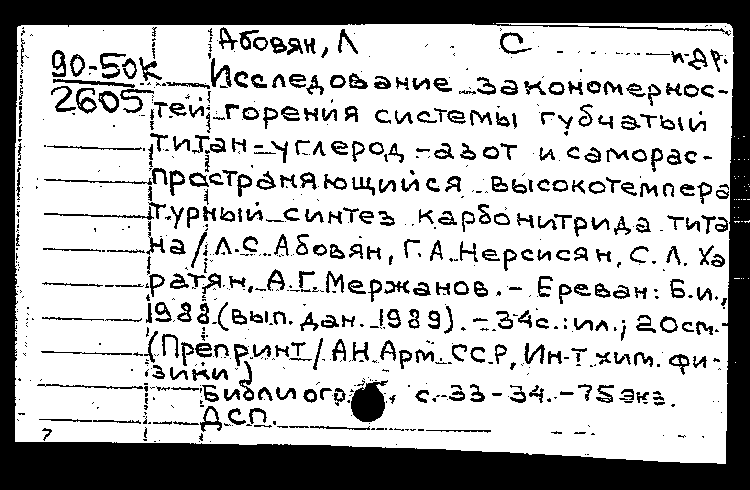 Абовян, Л С и др.
90-50к
2605
Исследование закономернос-
тей горения системы губчатый
титан-углерод-азот и саморас-
пространяющийся высокотемпера
турный синтез карбонитрида тита
на / Л.С. Абовян, Г.А. Нерсисян, С.Л. Ха
ратян, А.Г. Мержанов. - Ереван: Б.и.,
1988 (вып. дан. 1989). - 34с.: ил.; 20см.-
(Препринт / АН Арм. ССР, Ин-т хим. фи-
зики)
Библиогр. с. 33-34. - 75 экз.
ДСП.